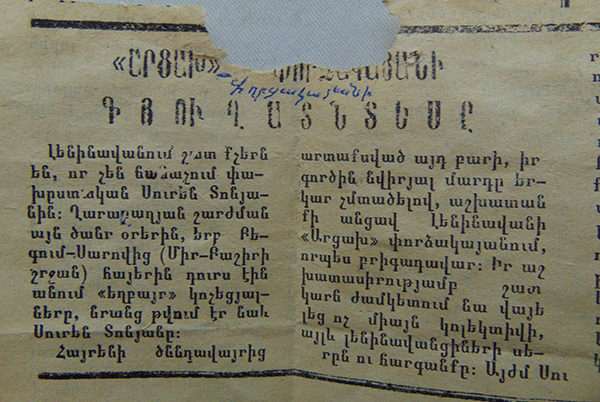 «ԱՐՑԱԽ» ՓՈՐՁԱԿԱՅԱՆԻ
փորձակայանի
ԳՅՈՒՂԱՏՆՏԵՍԸ
Լենինավանում շատ քչերն
են, որ չեն ճանաչում փա-
խըստական Սուրեն Տոնյա-
նին։ Ղարաղաղյան շարժման
այն ծանր օրերին, երբ Բե-
գում-Սարովից (Միր-Բաշիրի
շրջան) հայերին դուրս էին
անում «եղբայր» կոչեցյալ-
ները, նրանց թվում էր նաև
Սուրեն Տոնյանը։
Հայրենի ծննդավայրից
արտաքսված այդ բարի, իր
գործին նվիրյալ մարդը եր-
կար չմտածելով, աշխատան
քի անցավ Լենինավանի
«Արցախ» փորձակայանում,
որպես բրիգադավար։ Իր աշ
խատասիրությամբ շատ
կարճ ժամկետում նա վայե
լեց ոչ միայն կոլեկտիվի,
այլև լենինավանցիների սե-
րըն ու հարգանքը։ Այժմ Սու